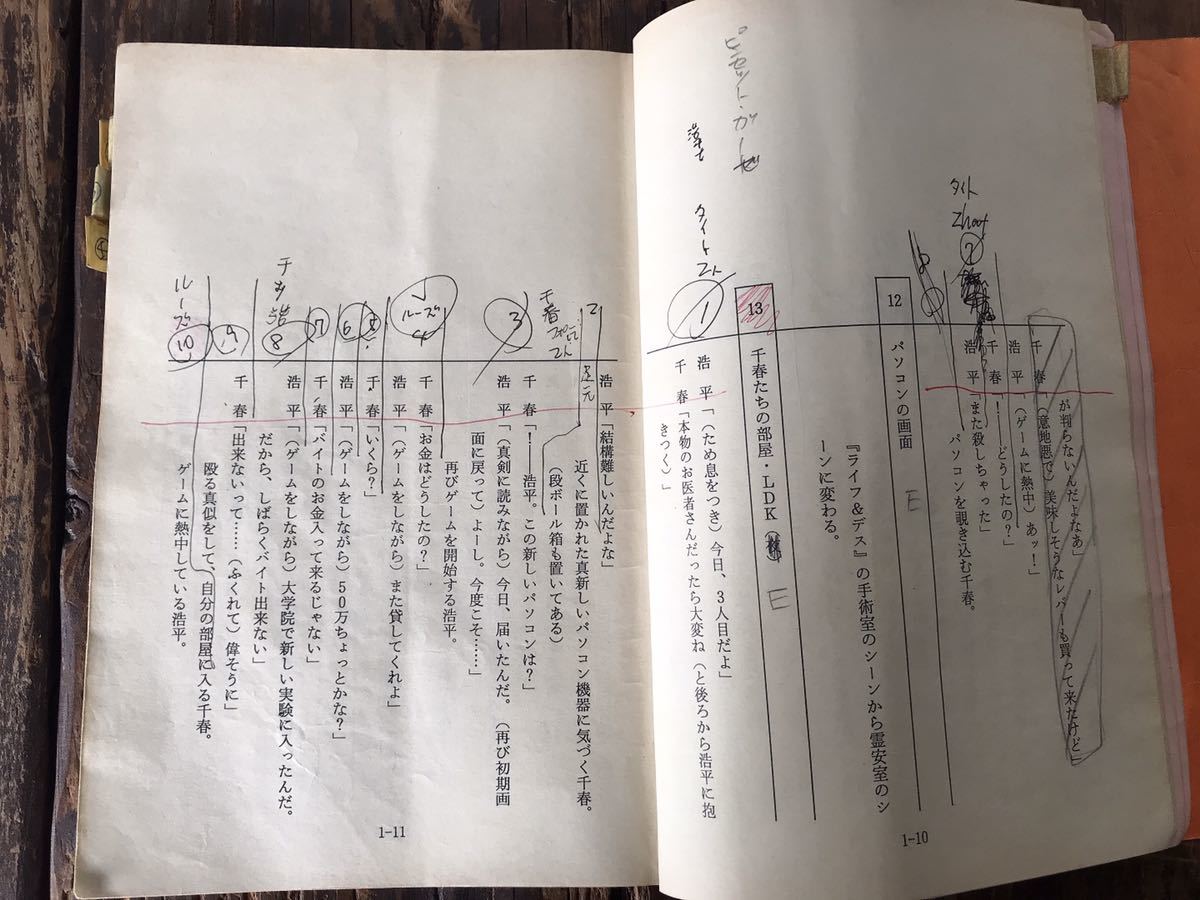 が判らないんだよなあ」
千　春「(意地悪で) 美味しそうなレバーも買って来たけど」
浩　平「(ゲームに熱中) あッ！」
千　春「！――どうしたの？」
浩　平「また殺しちゃった」
パソコンを覗き込む千春。
タイト
2
12
パソコンの画面
E
『ライフ＆デス』の手術室のシーンから霊安室のシ
ーンに変わる。
13
千春たちの部屋・LDK
E
タイト
1
浩　平「(ため息をつき) 今日、3人目だよ」
千　春「本物のお医者さんだったら大変ね (と後ろから浩平に抱
きつく)」
ピンセット・ガーゼ
1-10
2
浩　平「結構難しいんだよな」
足元
近くに置かれた真新しいパソコン機器に気づく千春。
(段ボール箱も置いてある)
千　春「！――浩平。この新しいパソコンは？」
3
浩　平「(真剣に読みながら) 今日、届いたんだ。(再び初期画
面に戻って) よーし。今度こそ……」
再びゲームを開始する浩平。
千　春「お金はどうしたの？」
ルーズ
4
浩　平「(ゲームをしながら) また貸してくれよ」
5
千　春「いくら？」
6
浩　平「(ゲームをしながら) 50万ちょっとかな？」
7
千　春「バイトのお金入って来るじゃない」
8
浩　平「(ゲームをしながら) 大学院で新しい実験に入ったんだ。
だから、しばらくバイト出来ない」
9
千　春「出来ないって…… (ふくれて) 偉そうに」
殴る真似をして、自分の部屋に入る千春。
ルーズ
10
ゲームに熱中している浩平。
1-11